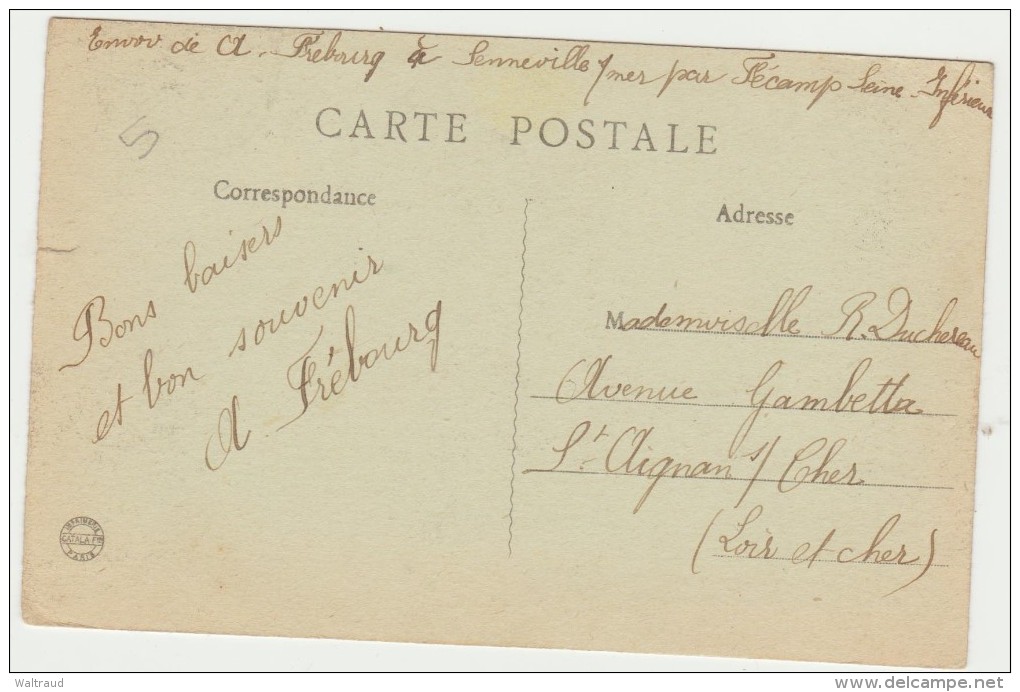 Envoi de A. Frébourg à Senneville s/mer par Fécamp Seine-Inférieure
5
CARTE POSTALE
Correspondance
Adresse
Bons baisers
et bon souvenir
A Frébourg
Mademoiselle R. Duchereau
Avenue Gambetta
St. Aignan s/ Cher
(Loir et cher)
IMPRIMERIE
CATALA FRES
PARIS
Waltraud
www.delcampe.net